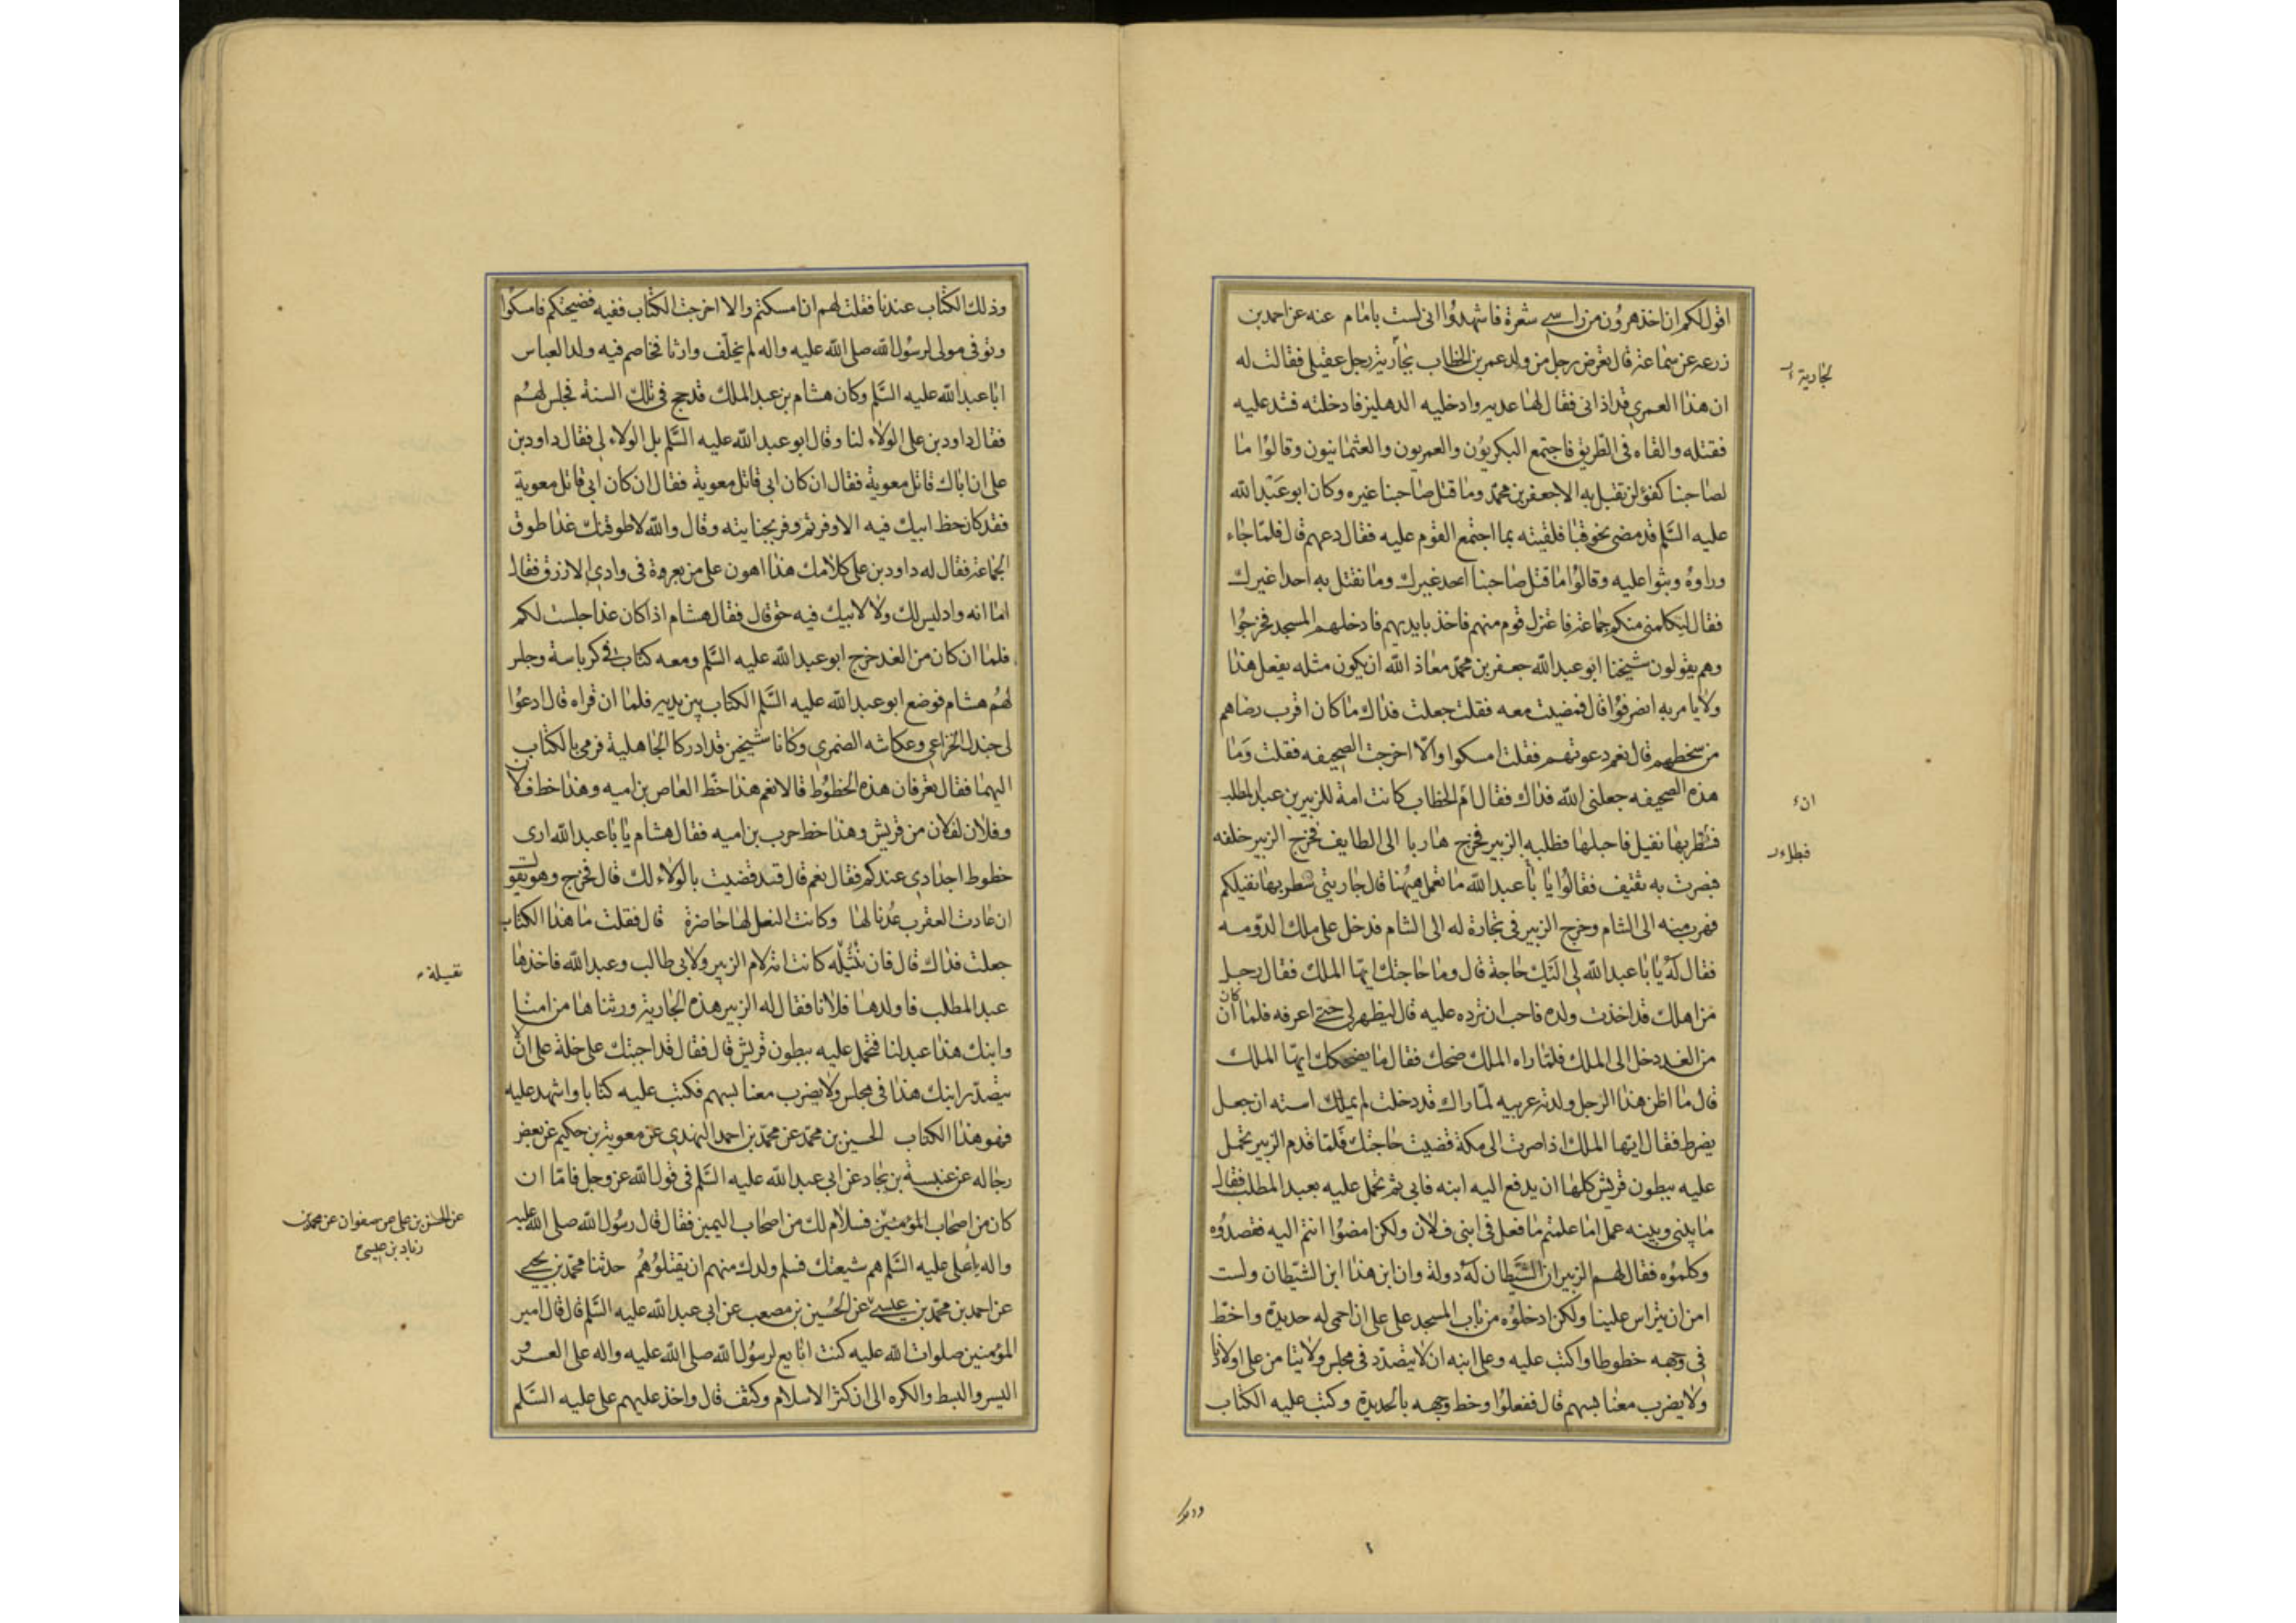 اقول لكم ان اخذ هرون من راسى شعرة فاشهدوا انى لست بامام عنه عن احمد بن
زرعه عن سماعة قال تعرض رجل من ولد عمر بن الخطاب بجارية رجل عقيلى فقالت له
ان هذا العمرى قد اذانى فقال لها عديه وادخليه الدهليز فادخلته فشد عليه
فقتله والقاه فى الطريق فاجتمع البكريون والعمريون والعثمانيون وقالوا ما
لصاحبنا كفؤ لن تقبل به الا جعفر بن محمد وما قتل صاحبنا غيره وكان ابو عبد الله
عليه السلم قد مضى نحو قبا فلقيته بما اجتمع القوم عليه فقال دعهم قال فلما جاء
وراوه وبثوا عليه وقالوا ما قتل صاحبنا احد غيرك وما نقتل به احدا غيرك
فقال ليكلمنى منكم جماعة فاعتزل قوم منهم فاخذ بايديهم فادخلهم المسجد فخرجوا
وهم يقولون شيخنا ابو عبد الله جعفر بن محمد معاذ الله ان يكون مثله يفعل هذا
ولا يامر به انصرفوا قال فمضيت معه فقلت جعلت فداك ما كان اقرب رضاهم
من سخطهم قال نعم دعوتهم فقلت امسكوا والا اخرجت الصحيفه فقلت وما
هذه الصحيفه جعلنى الله فداك فقال ام الخطاب كانت امة للزبير بن عبد المطلب
فشطر بها نفيل فاحبلها فطلبه الزبير فخرج هاربا الى الطايف فخرج الزبير خلفه
فبصرت به ثقيف فقالوا يا با عبد الله ما تعمل ههنا قال جاريتى شطر بها نفيلكم
فهرب منه الى الشام وخرج الزبير فى تجارة له الى الشام فدخل على ملك الدومه
فقال له يا با عبد الله لى اليك حاجة قال وما حاجتك ايها الملك فقال رجل
من اهلك قد اخذت ولده فاحب ان ترده عليه قال ليظهر لى حتى اعرفه فلما ان كان
من الغد دخل الى الملك فلما راه الملك ضحك فقال ما يضحكك ايها الملك
قال ما اظن هذا الرجل ولدته عربيه لما راك قد دخلت لم يملك استه ان جعل
يضرط فقال ايها الملك اذا صرت الى مكة قضيت حاجتك فلما قدم الزبير تحمل
عليه ببطون قريش كلها ان يدفع اليه ابنه فابى ثم تحمل عليه بعبد المطلب فقال
ما بينى وبينه عمل اما علمتم ما فعل فى ابنى فلان ولكن امضوا انتم اليه فقصدوه
وكلموه فقال لهم الزبير ان الشيطان له دولة وان ابن هذا ابن الشيطان ولست
امن ان يتراس علينا ولكن ادخلوه من باب المسجد على على ان احمى له حديدة واخط
فى وجهه خطوطا واكتب عليه وعلى ابنه ان لا يتصدر فى مجلس ولا يتامر على اولادنا
ولا يضرب معنا بسهم قال ففعلوا وخط وجهه بالحديدة وكتب عليه الكتاب
لجارية
ان
وذلك
وذلك الكتاب عندنا فقلت لهم ان امسكتم والا اخرجت الكتاب ففيه فضيحتكم فامسكوا
وتوفى مولى لرسول الله صلى الله عليه واله لم يخلف وارثا فخاصم فيه ولد العباس
ابا عبد الله عليه السلم وكان هشام بن عبد الملك قد حج فى تلك السنة فجلس لهم
فقال داود بن على الولاء لنا وقال ابو عبد الله عليه السلم بل الولاء لى فقال داود بن
على ان اباك قاتل معوية فقال ان كان ابى قاتل معوية فقال ان كان ابى قاتل معوية
فقد كان حظ ابيك فيه الاوفر ثم وفر بجنايته وقال والله لاطوقنك غدا طوق
الجماعة فقال له داود بن على كلامك هذا اهون على من بعروة فى وادى الازرق فقال
اما انه واد ليس لك ولا لابيك فيه حق قال فقال هشام اذا كان غدا جلست لكم
فلما ان كان من الغد خرج ابو عبد الله عليه السلم ومعه كتاب فى كرباسة وجلس
لهم هشام فوضع ابو عبد الله عليه السلم الكتاب بين يديه فلما ان قراه قال ادعوا
لى جندل الخزاعى وعكاشه الضمرى وكانا شيخين قد ادركا الجاهلية فرمى بالكتاب
اليهما فقال تعرفان هذه الخطوط قالا نعم هذا خط العاص بن اميه وهذا خط فلان
وفلان لفلان من قريش وهذا خط حرب بن اميه فقال هشام يا با عبد الله ارى
خطوط اجدادى عندكم فقال نعم قال قد قضيت بالولاء لك قال فخرج وهو يقول
ان عادت العقرب عدنا لها وكانت النعل لها حاضرة قال فقلت ما هذا الكتاب
جعلت فداك قال فان نثيله كانت امة لام الزبير ولابى طالب وعبد الله فاخذها
عبد المطلب فاولدها فلانا فقال له الزبير هذه الجارية ورثناها من امنا
وابنك هذا عبد لنا فتحمل عليه ببطون قريش قال فقال قد اجبتك على خلة على ان لا
يتصدر ابنك هذا فى مجلس ولا يضرب معنا بسهم فكتب عليه كتابا واشهد عليه
فهو هذا الكتاب الحسين بن محمد عن محمد بن احمد النهدى عن معوية بن حكيم عن بعض
رجاله عن عنبسة بن بجاد عن ابى عبد الله عليه السلم فى قول الله عز وجل فاما ان
كان من اصحاب المؤمنين فسلام لك من اصحاب اليمين فقال قال رسول الله صلى الله عليه
واله يا على عليه السلم هم شيعتك فسلم ولدك منهم ان يقتلوهم حدثنا محمد بن يحيى
عن احمد بن محمد بن عيسى عن الحسين بن مصعب عن ابى عبد الله عليه السلم قال قال امير
المؤمنين صلوات الله عليه كنت ابايع لرسول الله صلى الله عليه واله على العسر و
اليسر والبسط والكره الى ان كثر الاسلام وكثف قال واخذ عليهم على عليه السلم
نفيلة
عن الحسن بن على عن صفوان عن محمد بن
زياد بن عيسى